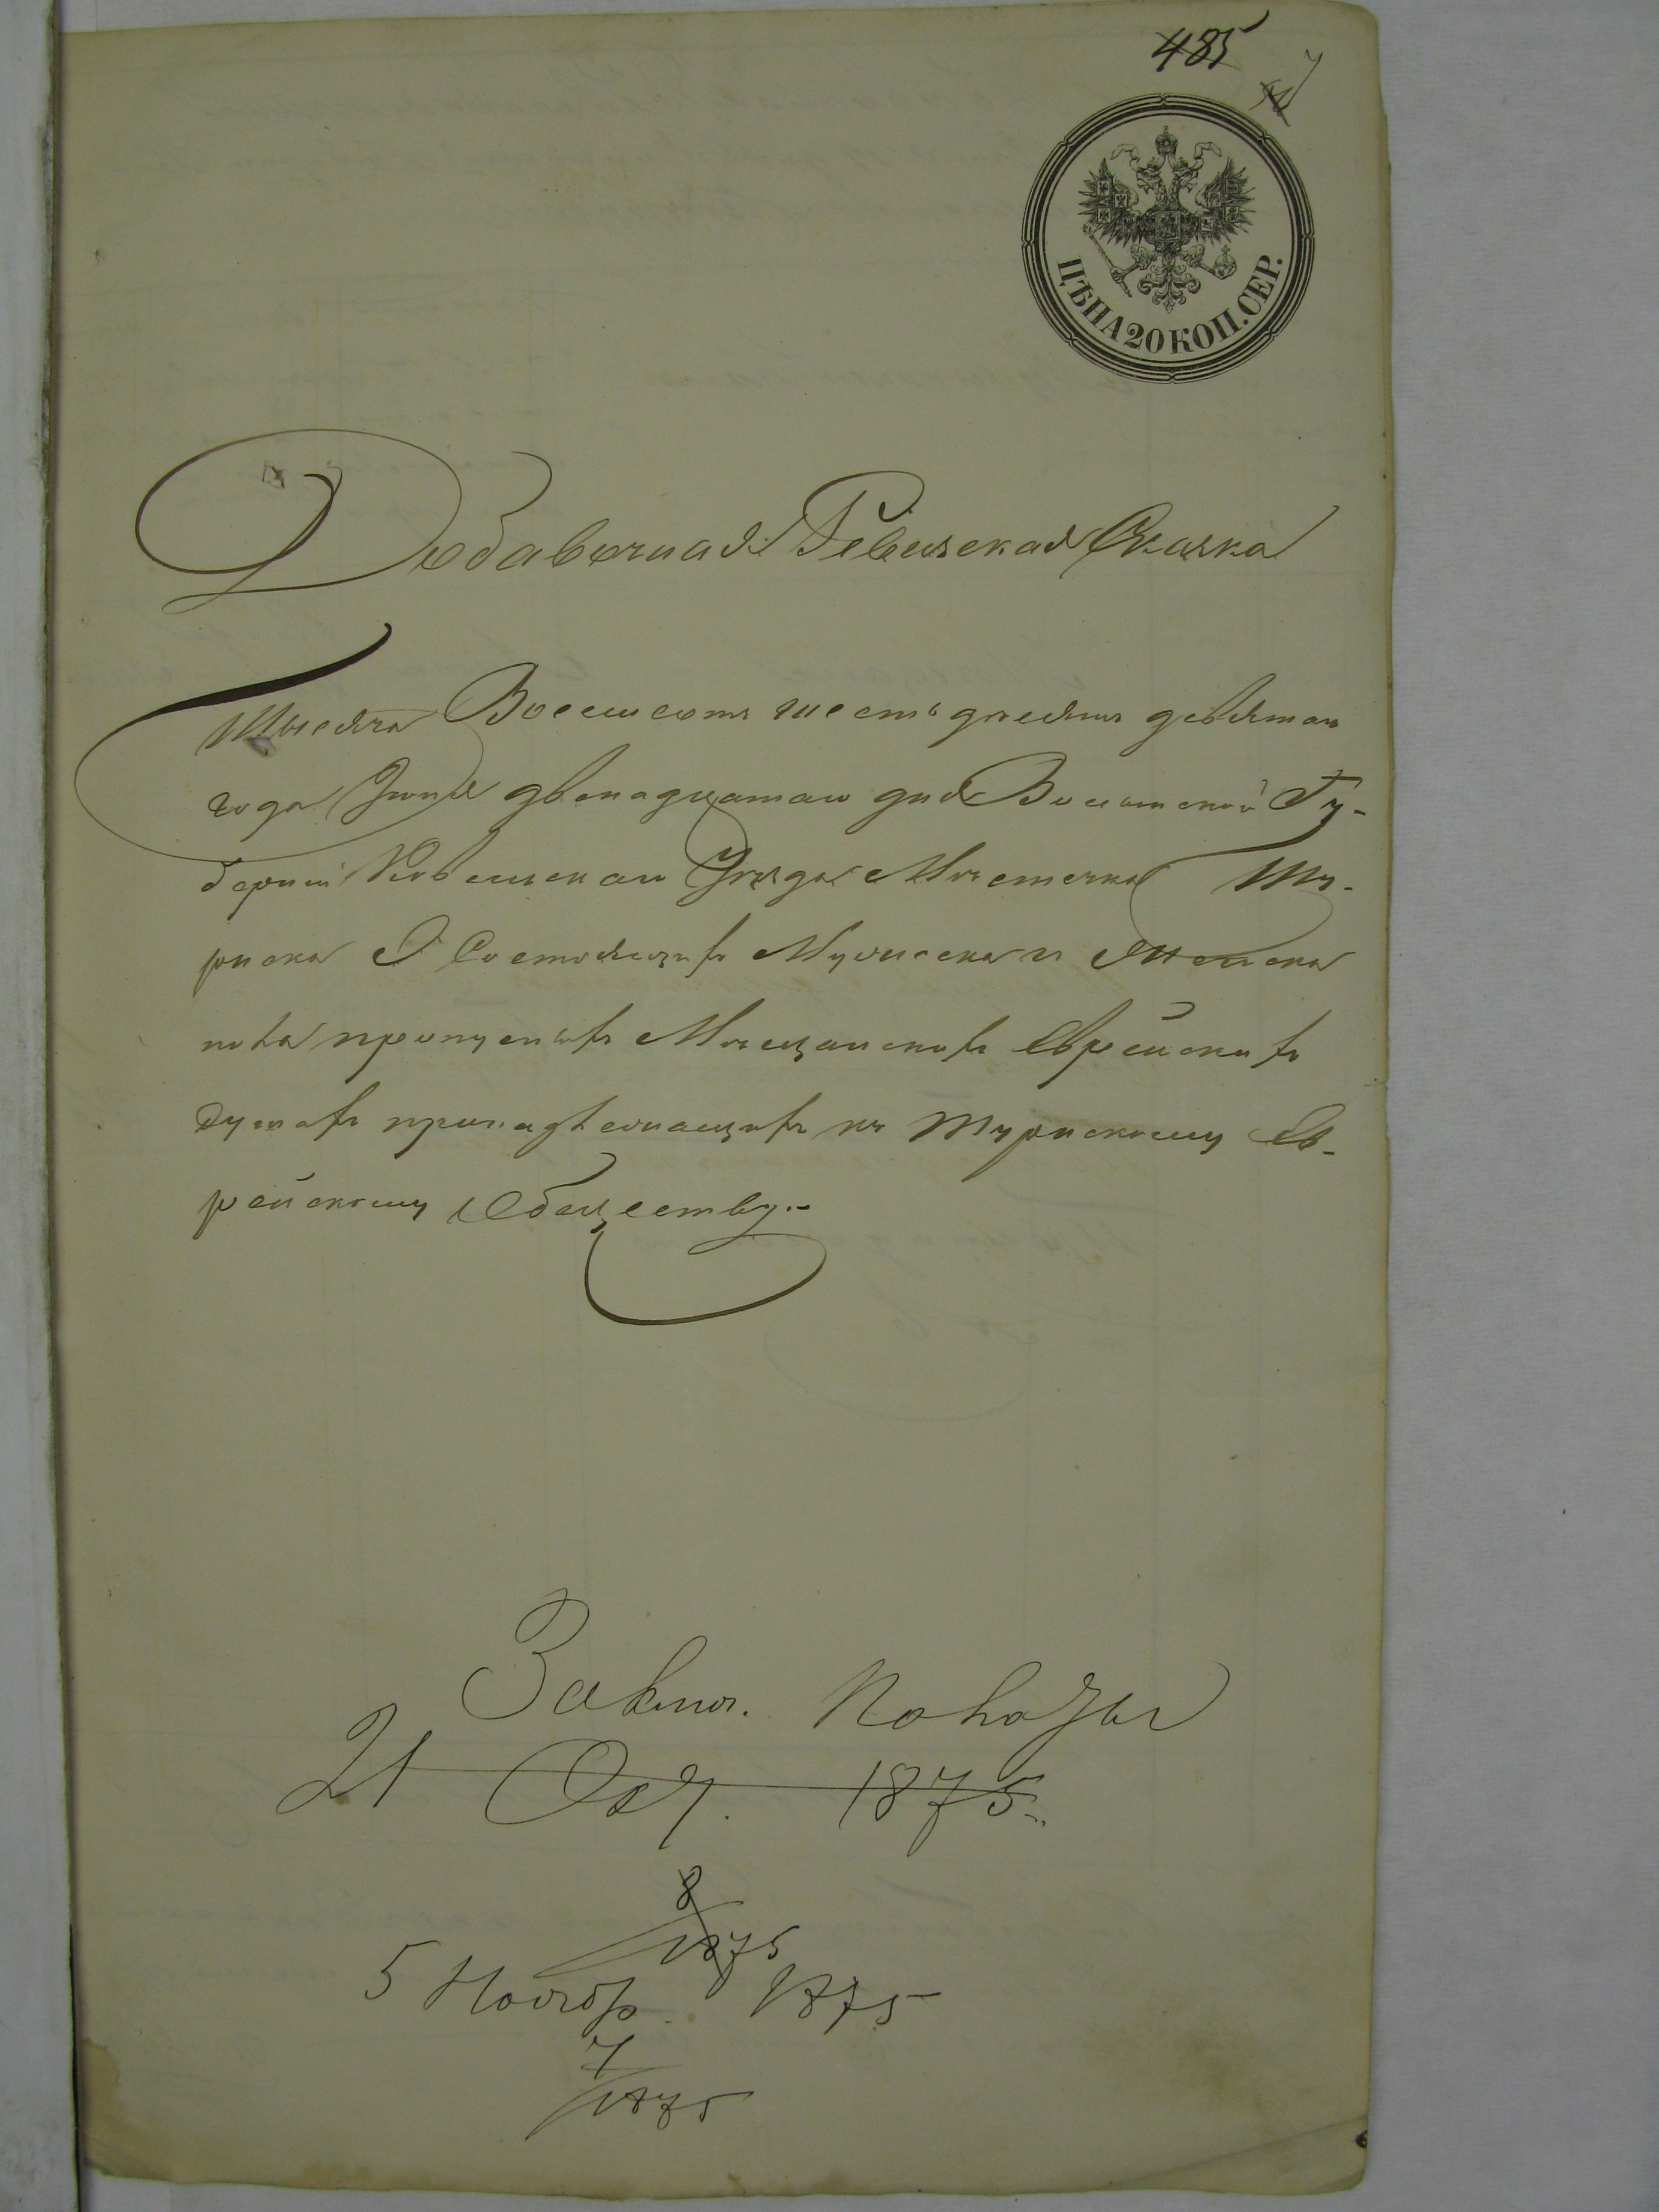 485
ЦѢНА 20 КОП. СЕР.
Добавочная Ревизская Сказка
Тысяча Восемсотъ шестьдесятъ девятаго
года Июня двенадцатаго дня Волынской Гу-
берніи Ковельскаго Уезда Местечка Ту-
риска О Состоящихъ Мужеска и Женска
пола пропусныхъ Мещанскихъ Еврейскихъ
душахъ принадлежащихъ къ Турискому Ев-
рейскому Обществу.-
21 Окт. 1875.
8
1875
5 Ноябр. 1875
7
1875